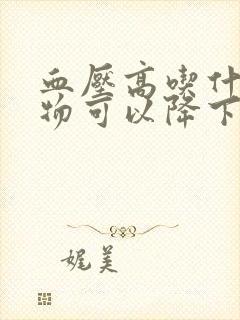 血壓高喫什
物可以降下
娓美